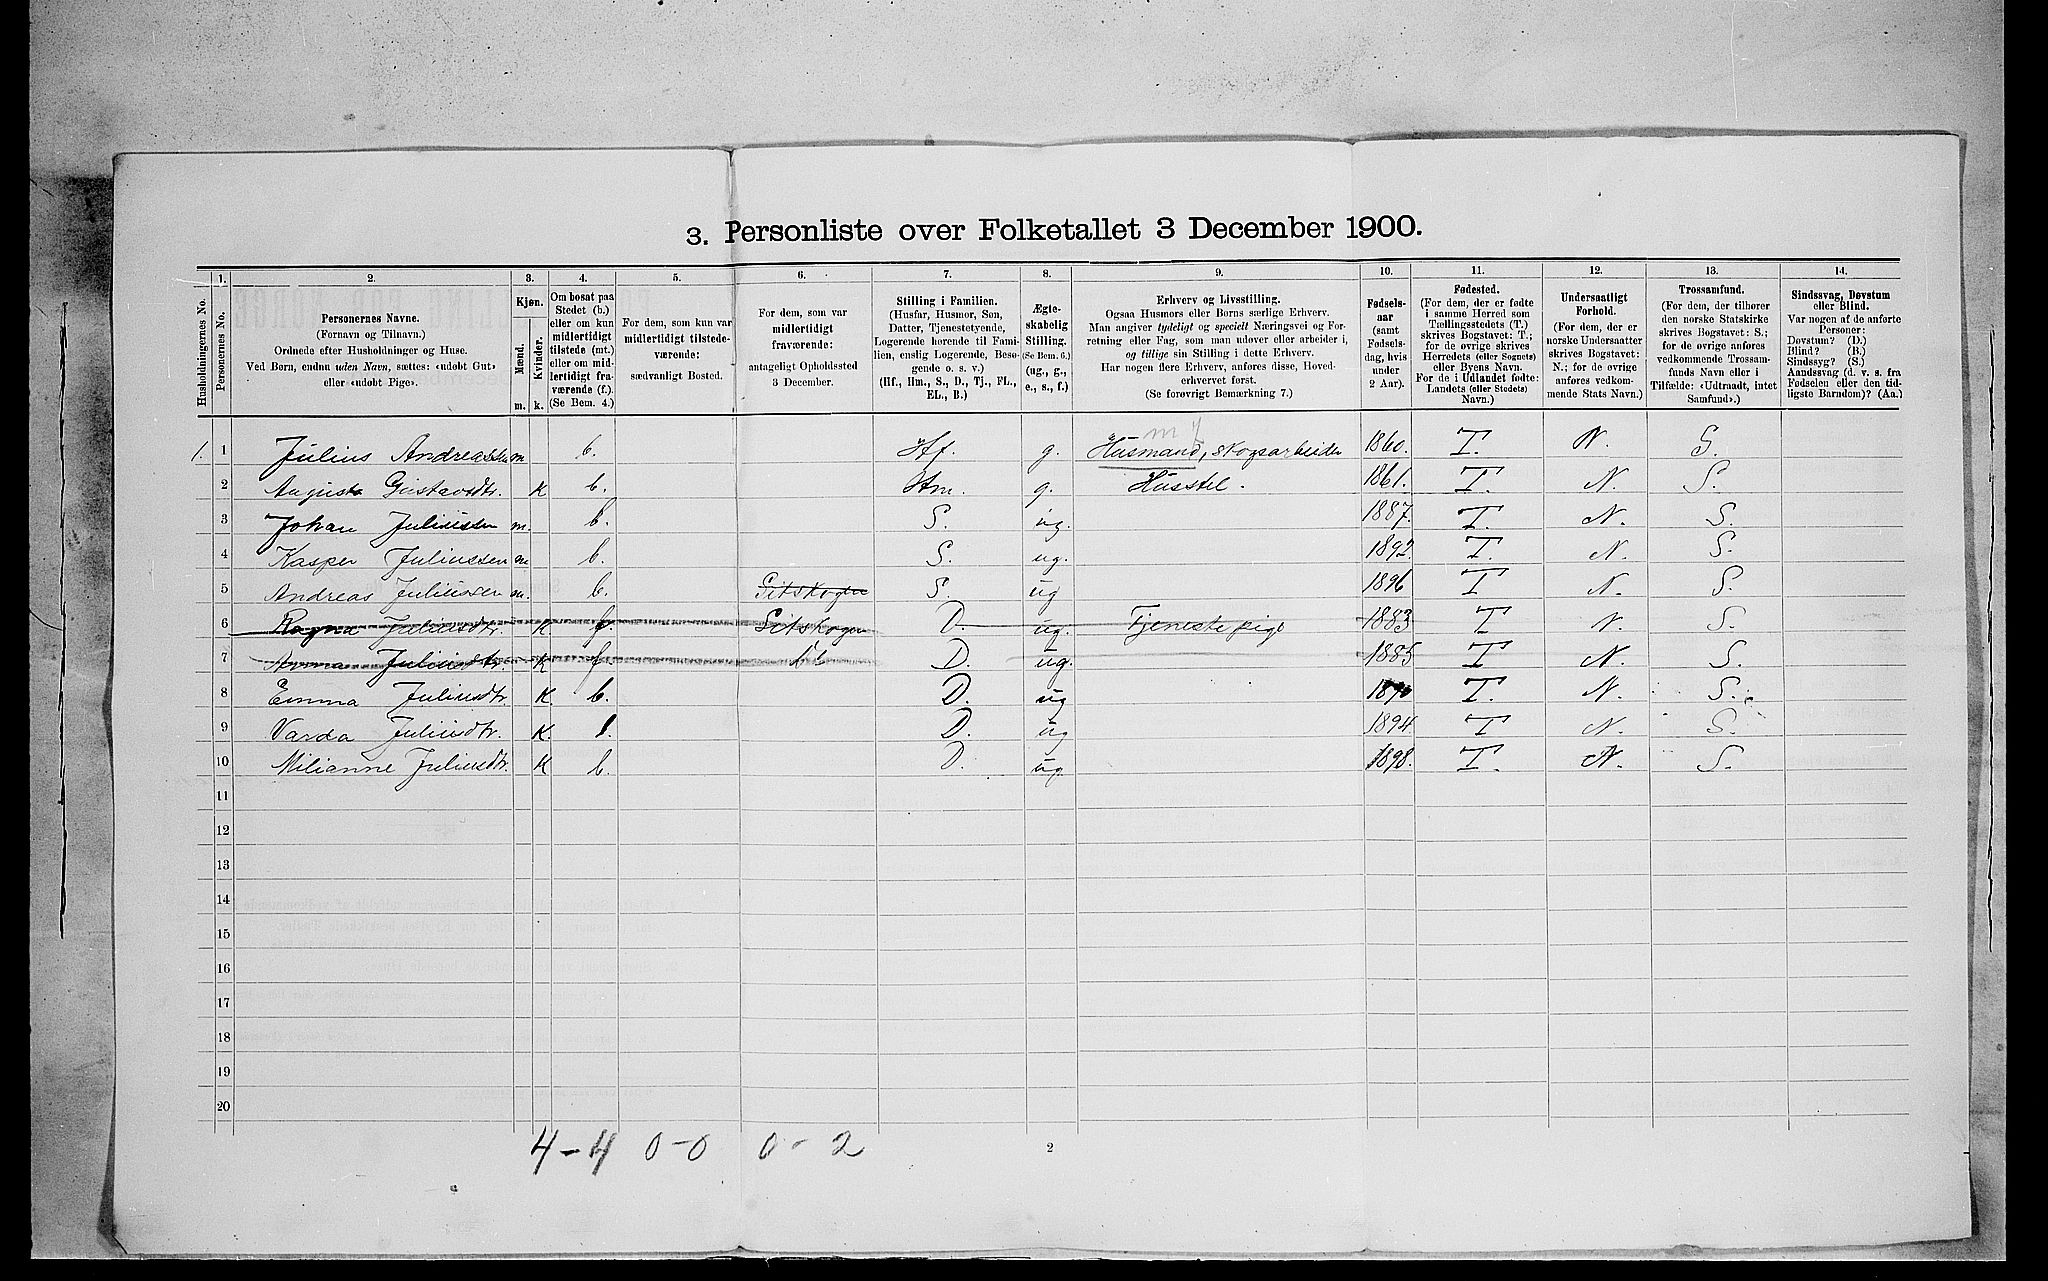 3. Personliste over Folketallet 3 December 1900.
Husholdningernes No.
1.
Personernes No.
2.
Personernes Navne.
(Fornavn og Tilnavn.)
Ordnede efter Husholdninger og Huse.
Ved Børn, endnu uden Navn, sættes: «udobt Gut»
eller «udobt Pige».
3.
Kjøn.
Mænd.
Kvinder.
m. k.
4.
Om bosat paa
Stedet (b.)
eller om kun
midlertidigt
tilstede (mt.)
eller om mid-
lertidigt fra-
værende (f.).
(Se Bem. 4.)
5.
For dem, som kun var
midlertidigt tilstede-
værende:
sædvanligt Bosted.
6.
For dem, som var
midlertidigt
fraværende:
antageligt Opholdssted
3 December.
7.
Stilling i Familien.
(Husfar, Husmor, Søn,
Datter, Tjenestetyende,
Logerende hørende til Fami-
lien, enslig Logerende, Besø-
gende o. s. v.)
(Hf., Hm., S., D., Tj., FL.,
EL., B.)
8.
Ægte-
skabelig
Stilling.
(Se Bem. 6.)
(ug., g.,
e., s., f.)
9.
Erhverv og Livsstilling.
Ogsaa Husmors eller Børns særlige Erhverv.
Man angiver tydeligt og specielt Næringsvei og For-
retning eller Fag, som man udøver eller arbeider i,
og tillige sin Stilling i dette Erhverv.
Har nogen flere Erhverv, anføres disse, Hoved-
erhvervet først.
(Se forøvrigt Bemærkning 7.)
10.
Fødsels-
aar
(samt
Fødsels-
dag, hvis
under
2 Aar).
11.
Fødested.
(For dem, der er fødte
i samme Herred som
Tællingsstedets (T.)
skrives Bogstavet: T.;
for de øvrige skrives
Herredets (eller Sognets)
eller Byens Navn.
For de i Udlandet fødte:
Landets (eller Stedets)
Navn.)
12.
Undersaatligt
Forhold.
(For dem, der er
norske Undersaatter
skrives Bogstavet:
N.; for de øvrige
anføres vedkom-
mende Stats Navn.)
13.
Trossamfund.
(For dem, der tilhører
den norske Statskirke
skrives Bogstavet: S.;
for de øvrige anføres
vedkommende Trossam-
funds Navn eller i
Tilfælde: «Udtraadt, intet
Samfund».)
14.
Sindssvag, Døvstum
eller Blind.
Var nogen af de anførte
Personer:
Døvstum? (D.)
Blind? (B.)
Sindssyg? (S.)
Aandssvag (d. v. s. fra
Fødselen eller den tid-
ligste Barndom)? (Aa.)
1. 1 Julius Andreassen m b. Hf. g. Husmand, skogsarbeider 1860. T. N. S.
2 Augusta Gustavsdtr. K b. Hm. g. Husstel. 1861. T. N. S.
3 Johan Juliussen m. b. S. ug. 1887. T. N. S.
4 Kasper Juliussen m b. S. ug. 1892. T. N. S.
5 Andreas Juliussen m. b. Sitskogen S. ug 1896 T N. S.
6 Ragna Juliusdtr. K. f. Sitskogen D. ug. Tjenestepige 1883 T N. S.
7 Anna Juliusdtr. K f. D. ug. 1885 T N. S.
8 Emma Juliusdtr. K. b. D. ug 1890 T. N. S.
9 Varda Juliusdtr. K. b. D. ug 1894. T N. S.
10 Milianne Juliusdtr. K b. D. ug. 1898. T. N. S.
11
12
13
14
15
16
17
18
19
20
4-4 0-0 0-2
2